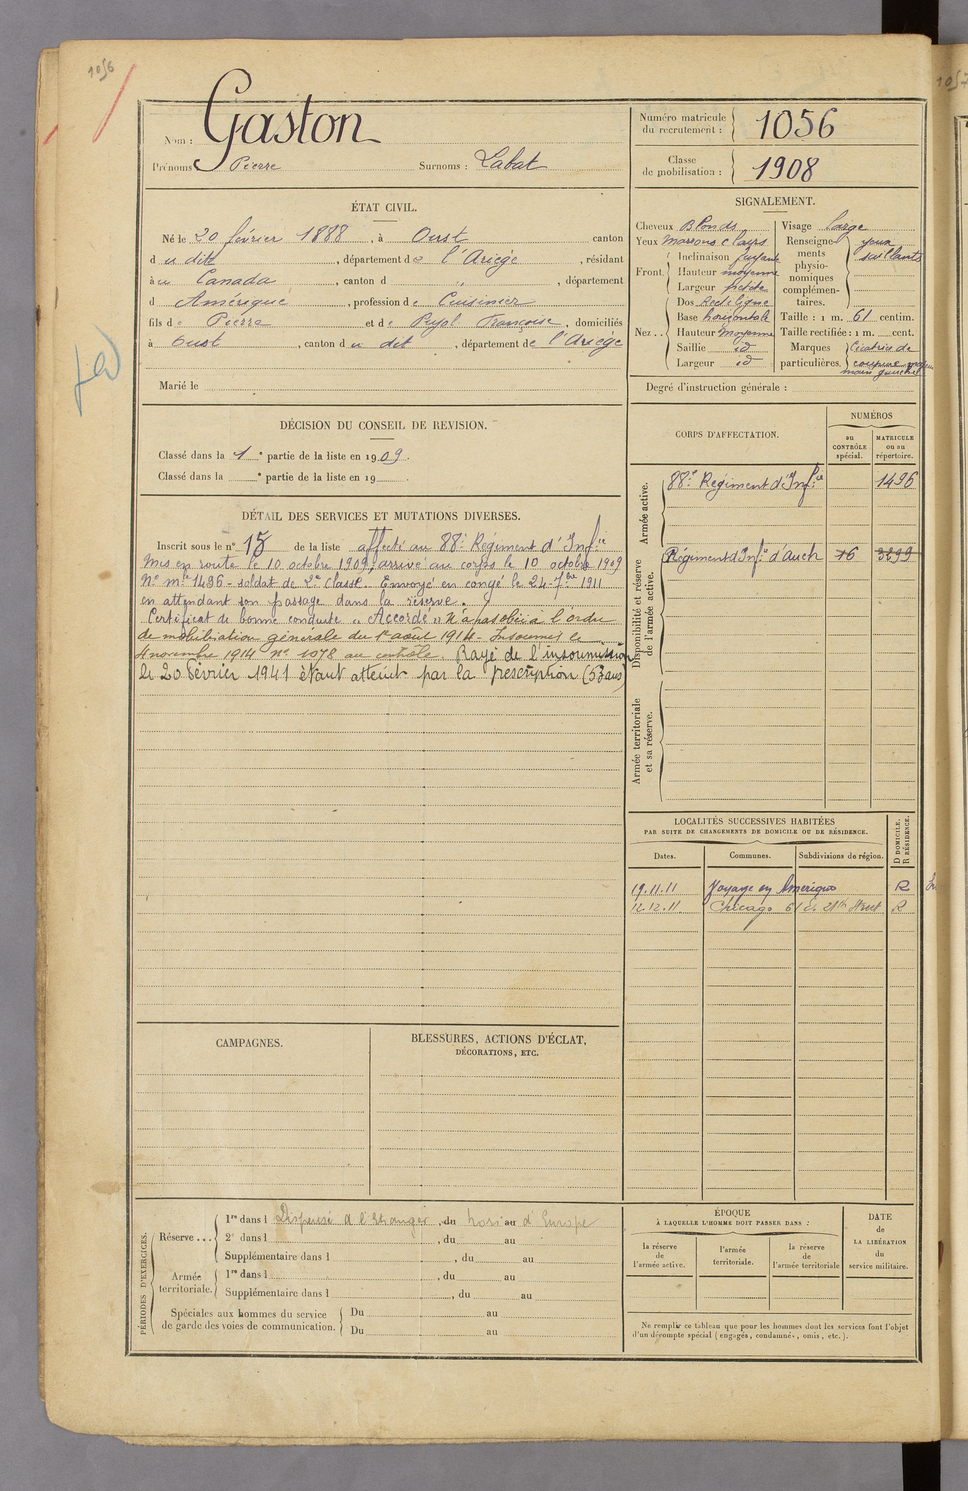 1056
Nom : Gaston
Prénoms Pierre Surnoms : Labat
Numéro matricule du recrutement : 1056
Classe de mobilisation : 1908
ÉTAT CIVIL.
Né le 20 février 1888, à Oust canton
d u dit, département de l'Ariège, résidant
à u Canada, canton d „, département
d Amérique, profession de Cuisinier
fils de Pierre et de Pujol Françoise, domiciliés
à Oust, canton du dit, département de l'Ariège
Marié le
SIGNALEMENT.
Cheveux Blonds
Yeux Marrons clairs
Front. Inclinaison fuyante
Hauteur moyenne
Largeur petite
Nez... Dos Rectiligne
Base horizontale
Hauteur Moyenne
Saillie id
Largeur id
Visage large
Renseignements physionomiques complémentaires. yeux saillants
Taille : 1 m. 61 centim.
Taille rectifiée : 1 m. cent.
Marques particulières. Cicatrice de
coupure
main gauche
Degré d'instruction générale :
DÉCISION DU CONSEIL DE REVISION.
Classé dans la 1e partie de la liste en 1909.
Classé dans la e partie de la liste en 19
DÉTAIL DES SERVICES ET MUTATIONS DIVERSES.
Inscrit sous le n° 15 de la liste affecté au 88e Régiment d'Infie
Mis en route le 10 octobre 1909, arrivé au corps le 10 octobre 1909
N° mle 1496 - soldat de 2e classe. Envoyé en congé le 24 7bre 1911
en attendant son passage dans la réserve.
Certificat de bonne conduite „ Accordé „ N'a pas obéi à l'ordre
de mobilisation générale du 1er août 1914 - Insoumis le
4 novembre 1914 N° 1078 au contrôle. Rayé de l'insoumission
le 20 Février 1941 étant atteint par la prescription (53 ans)
CORPS D'AFFECTATION.
NUMÉROS
au CONTRÔLE spécial.
MATRICULE ou au répertoire.
Armée active.
88e Régiment d'Infie 1496
Disponibilité et réserve de l'armée active.
Régiment d'Infie d'Auch 76 3299
Armée territoriale et sa réserve.
LOCALITÉS SUCCESSIVES HABITÉES
PAR SUITE DE CHANGEMENTS DE DOMICILE OU DE RÉSIDENCE.
Dates. Communes. Subdivisions de région. D DOMICILE. R RÉSIDENCE.
19.11.11 Voyage en Amérique R
12.12.11 Chicago 61 E. 21th Street R
CAMPAGNES.
BLESSURES, ACTIONS D'ÉCLAT,
DÉCORATIONS, ETC.
PÉRIODES D'EXERCICES.
Réserve... 1re dans l Dispensé à l'étranger, du hors au d'Europe
2e dans l , du au
Supplémentaire dans l , du au
Armée territoriale. 1re dans l , du au
Supplémentaire dans l , du au
Spéciales aux hommes du service
de garde des voies de communication. Du au
Du au
ÉPOQUE
À LAQUELLE L'HOMME DOIT PASSER DANS :
la réserve de l'armée active.
l'armée territoriale.
la réserve de l'armée territoriale
DATE
de
LA LIBÉRATION
du
service militaire.
Ne remplir ce tableau que pour les hommes dont les services font l'objet
d'un décompte spécial (engagés, condamnés, omis, etc.).